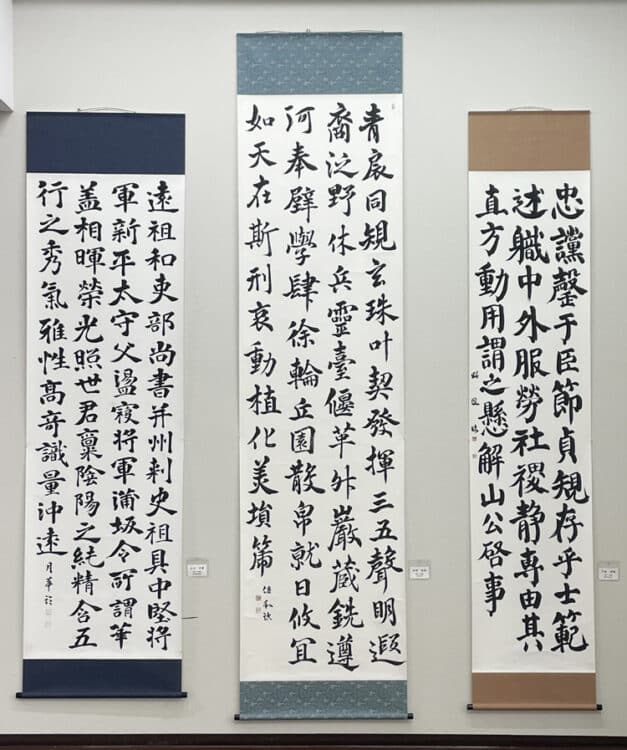 忠讜罄于臣節貞規存乎士範
述職中外服勞社稷静専由其
直方動用謂之懸解山公啓事
青扆同規玄珠叶契發揮三五聲明遐
裔泛野休兵靈臺偃革舛巖蔵銑遵
河奉璧學肆徐輪丘園散帛就日攸宜
如天在斯刑哀動植化美塤篪
遠祖和吏部尚書并州刺史祖具中堅将
軍新平太守父盪寇将軍蒲坂令所謂華
蓋相暉榮光照世君稟陰陽之純精含五
行之秀氣雅性高奇識量沖遠